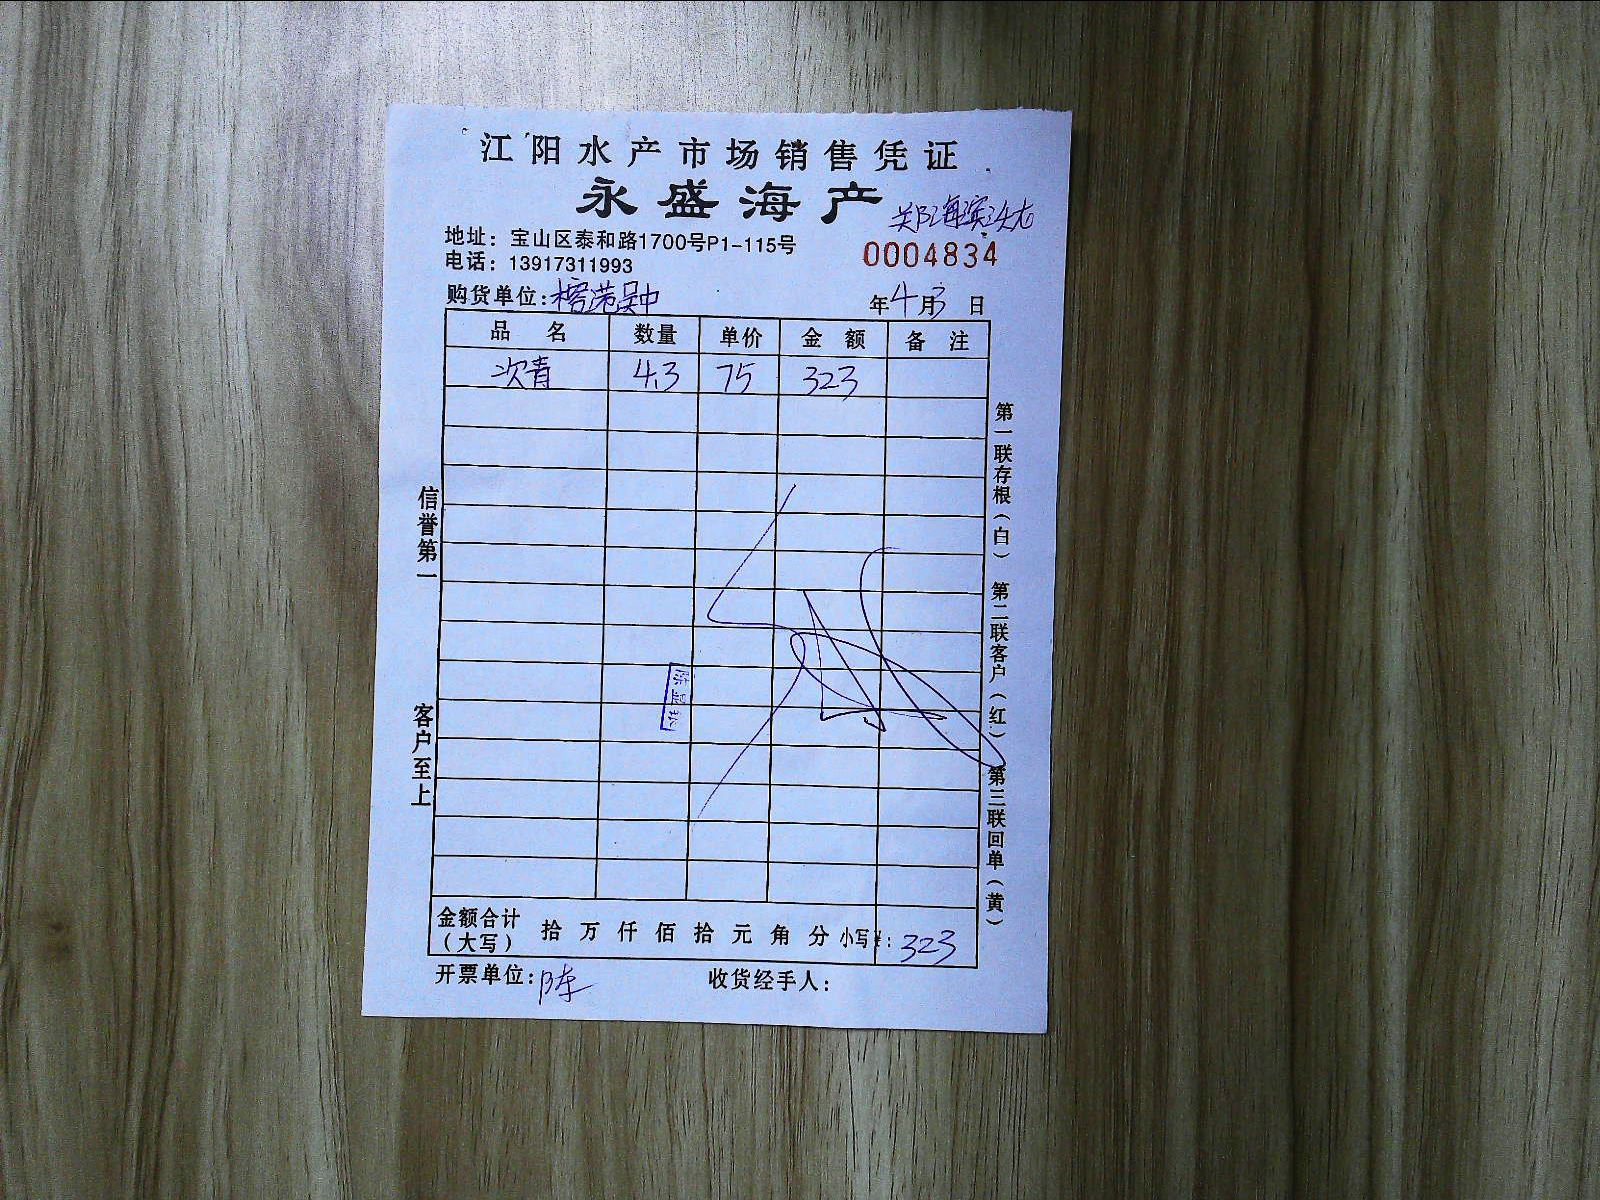 江阳水产市场销售凭证
永盛海产
郑海滨
地址：宝山区泰和路1700号P1-115号
0004834
电话：13917311993
购货单位：榕港吴中
年4月3日
品名 数量 单价 金额 备注
次青 4.3 75 323
信誉第一
客户至上
第一联存根（白） 第二联客户（红） 第三联回单（黄）
金额合计（大写） 拾 万 仟 佰 拾 元 角 分 小写¥：323
开票单位：陈 收货经手人：